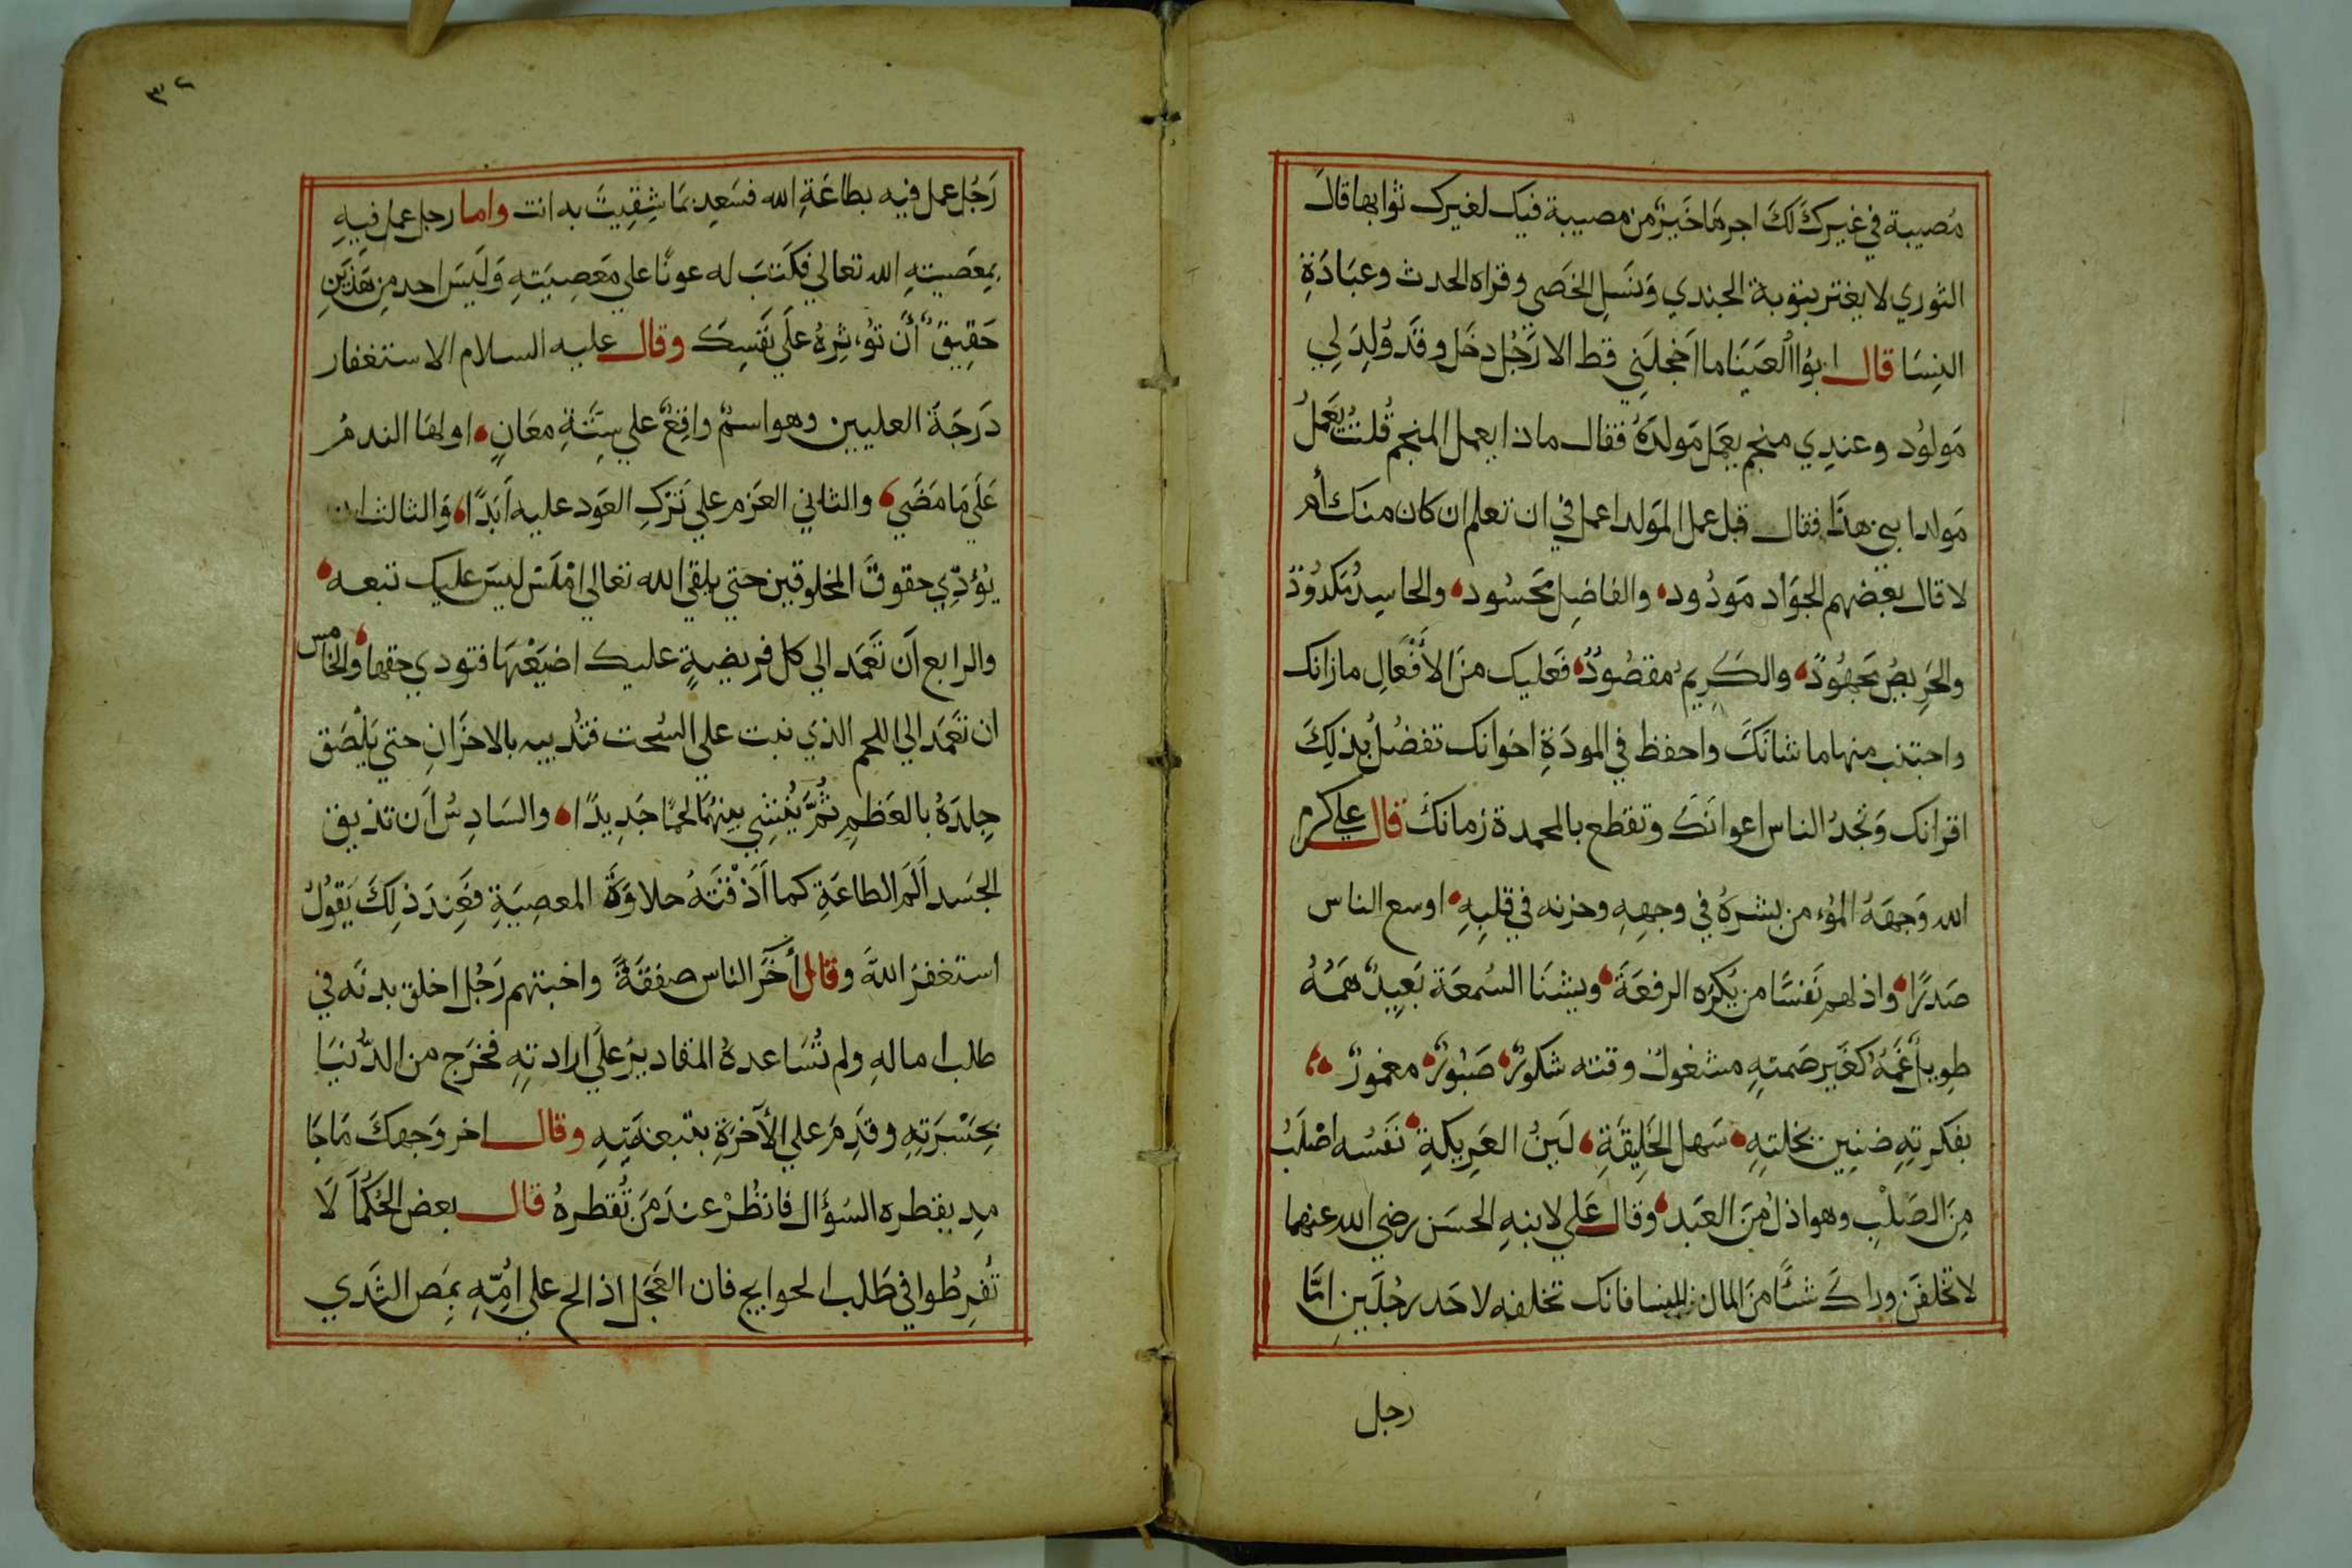 مُصيبة في غيرك لك اجرها خيرٌ من مصيبة فيك لغيرك ثوابها قال
الثوري لا يغتر بتوبة الجندي ونسل الخصي وقراه الحدث وعبادة
النسا قال ابوا العينا ما اخجلني قط الا رَجُل دخل وقد وُلِدَ لِي
مَولوُد وعندِي منجم يعمل مَولدَهُ فقال ماذا يعمل المنجم قُلتُ يَعملُ
مَولد ابني هذا فقال قبل عمل المَولد اعمل في ان تعلم ان كان منك أم
لا قال بعضهم الجوَاد مَودُود والفاضِل محسُود والحاسِدُ مَكدُودٌ
والحَرِيصُ مجهُودٌ والكَرِيمُ مقصُودٌ فَعليك منَ الأفعالِ مازانك
واجتنب منها ما شانَكَ واحفظ في المودَةِ اخوانك تفضُلُ بذلِكَ
اقرانك وَتجدُ الناس اعوانَكَ وتقطع بالمحمدة زمانكَ قال علي كرم
الله وَجهَهُ المؤمن بشرهُ في وجهِهِ وحزنه في قلبِهِ اوسع الناس
صَدرًا واذلهم نَفسًا من يكرَه الرفعَةَ ويشنَا السُمعَة بَعِيدٌ هَمُّهُ
طوِيلٌ غَمُهُ كغَير صَمتِهِ مشغولٌ وقته شكورٌ صَبُورٌ مغمورٌ
بفكرتِهِ ضنِين بخلتِهِ سَهل الخَلِيقَةِ لَينُ العَرِيكةِ نَفسُه اصْلَبُ
مِنَ الصَلْبِ وهو اذلُ مِنَ العَبد وقال عَلي لابنهِ الحسَن رضي الله عنهما
لا تخلفَن وراكَ شيئًا منَ المال فانك تخلفه لاحَد رجُلَينِ امَّا
رجل
٣٢
رَجُل عمل فيه بطاعَةِ الله فسَعِد بمَا شِقِيتَ به انت واما رجل عمل فيهِ
بمعصيتهِ الله تعالي فكنتَ له عونًا علي مَعصِيَتهِ وَلَيسَ احد مِن هَذَينِ
حَقِيقٌ أن تؤثِرهُ علَي نَفسِكَ وقال عليه السلام الاستغفار
دَرجَة العليين وهو اسمٌ واقعٌ علي ستَّةِ معَانٍ اولها الندمُ
عَلَي مَا مَضَي والثاني العَزم علي تَركِ العَود عليه اَبَدًا وَالثالث ان
يُؤدِّي حقوقَ المخلوقين حتي يلقي الله تعالي امْلَسَ ليسَ عليك تبعه
والرابع اَن تَعَمَد الي كل فريضةٍ عليك اضيَعْتهَا فتودي حقها والخامس
ان تَعَمَد الي اللحم الذي نبت علي السُحت فتُدِيبه بالاحزَانِ حتي يَلْصَق
جِلدَهُ بالعَظمِ ثُمَّ يُنشِي بينهُمَا لحمًا جَدِيدًا والسَادِسُ اَن تذيق
الجسَد اَلَم الطاعَةِ كما اَذَقْتَهُ حلاوَةَ المعصِيَةِ فعِندَ ذلِكَ يَقوُلُ
استغفرُ اللهَ وقال أخَرَ الناس صفقَةً واخبتهم رَجُل اخلق بدنَه في
طلب امالهِ ولم تُسَاعدهُ المقاديرُ علَي ارادتِهِ فخرَج من الدُنيَا
بحَسْرَتهِ وقَدِمَ علي الأخرَةِ بتبعَتِهِ وقال اخر وَجهكَ مَا جَا
مِد يقطره السُؤَال فانظُرْ عندَ مَن تُقطرهُ قال بعض الحُكَمَا لَا
تُفرِطُوا في طَلب الحوايج فان العَجَل اذا لح علي اُمِّهِ بمَص الثَدي